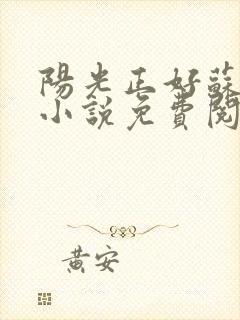 陽光正好蘇
小說免費閱
黃安